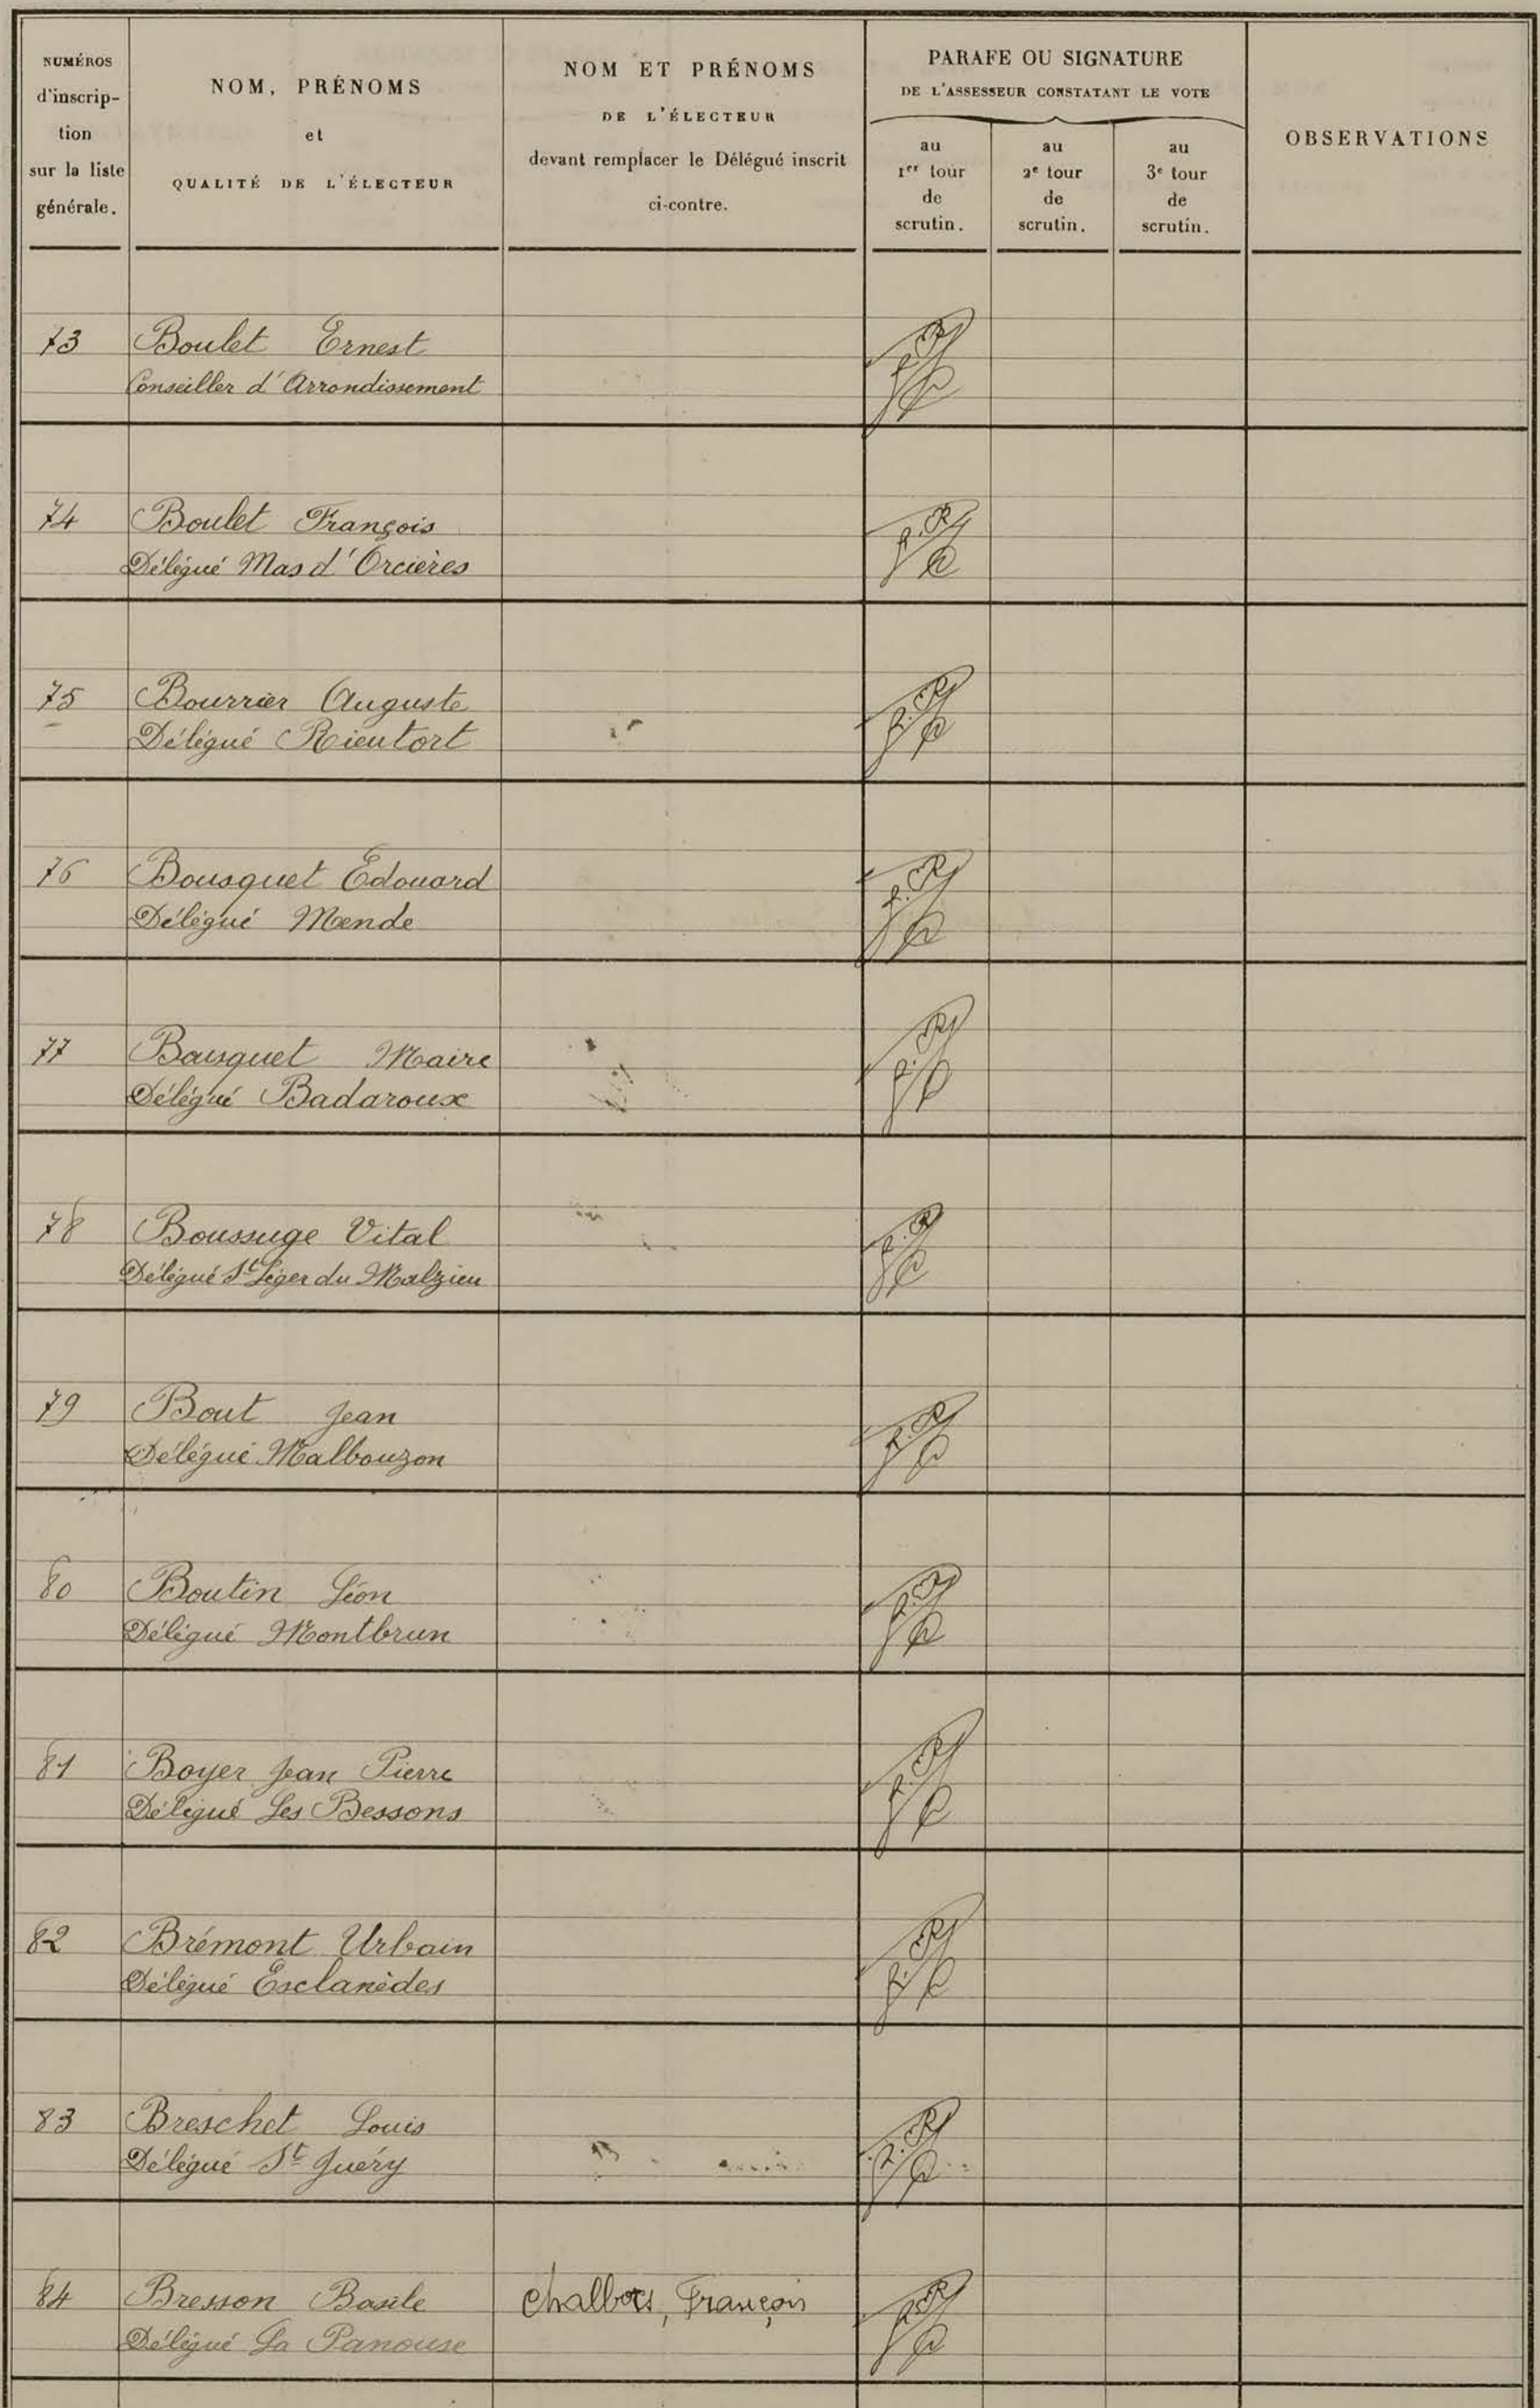 NUMÉROS
d'inscrip-
tion
sur la liste
générale.
NOM, PRÉNOMS
et
QUALITÉ DE L'ÉLECTEUR
NOM ET PRÉNOMS
DE L'ÉLECTEUR
devant remplacer le Délégué inscrit
ci-contre.
PARAFE OU SIGNATURE
DE L'ASSESSEUR CONSTATANT LE VOTE
au
1er tour
de
scrutin.
au
2e tour
de
scrutin.
au
3e tour
de
scrutin.
OBSERVATIONS
73 Boulet Ernest
Conseiller d'Arrondissement
74 Boulet François
Délégué Mas d'Orcières
75 Bourrier Auguste
Délégué Rieutort
76 Bousquet Edouard
Délégué Mende
77 Bousquet Maire
Délégué Badaroux
78 Boussuge Vital
Délégué St Léger du Malzieu
79 Bout Jean
Délégué Malbouzon
80 Boutin Léon
Délégué Montbrun
81 Boyer Jean Pierre
Délégué Les Bessons
82 Brémont Urbain
Délégué Esclanèdes
83 Breschet Louis
Délégué St Juéry
84 Bresson Basile Chalbos, François
Délégué La Panouse